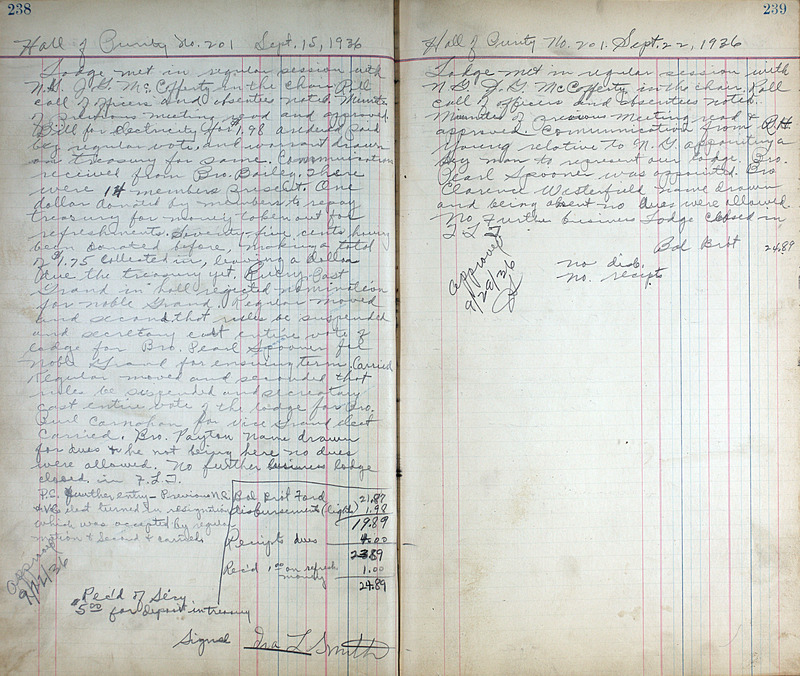 238
Hall of Purity No. 201 Sept. 15, 1936
Lodge met in regular session with
N.G. J.G. McCofferty in the chair. Roll
call of officers and absentees noted. Minutes
of previous meeting read and approved.
Bill for electricity for $1.98 ordered paid
by regular vote and warrant drawn
on treasury for same. Communication
received from Bro. Bailey. There
were 14 members present. One
dollar donated by members to repay
treasury for money taken out for
refreshments. Seventy-five cents having
been donated before, making a total
of $1.75 collected in, leaving a dollar
due the treasury yet. Every Past
Grand in hall rejected nomination
for Noble Grand. Regular moved
and second that rules be suspended
and secretary cast entire vote of
lodge for Bro. Pearl Spooner for
Noble Grand for ensuing term. Carried
Regular moved and seconded that
rules be suspended and secretary
cast entire vote of the lodge for Bro.
Carnahan for Vice Grand elect
Carried. Bro. Payton name drawn
for dues & he not being here no dues
were allowed. No further business lodge
closed in F.L.T.
P.S. further entry - Previous N.G.
& V.G. elect turned in resignation
which was accepted by regular
motion & second & carried
Bal Brot Ford 21.87
disbursements (lights) 1.98
19.89
Receipts dues 4.00
23.89
Rec'd 1.00 on refresh money 1.00
24.89
approved
9/22/36
Rec'd of Sec'y
5.00 for deposit in treasury
Signed Ira L Smith
239
Hall of Purity No. 201. Sept. 22, 1936
Lodge met in regular session with
N.G. J.G. McCofferty in the chair. Roll
call of officers and absentees noted.
Minutes of previous meeting read &
approved. Communication from
Young relative to N.G. appointing a
key man to represent our lodge. Bro.
Pearl Spooner was appointed. Bro
Clarence Westerfield name drawn
and being absent no dues were allowed.
No further business Lodge closed in
F L T
Bal Brot 24.89
no disb.
no. receipts
approved
9/29/36